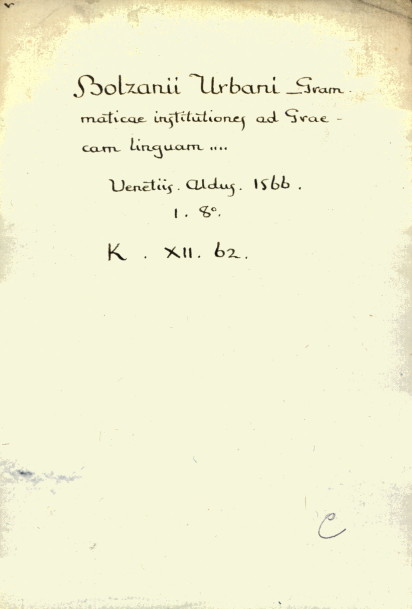 Bolzanii Urbani Gram-
maticae institutiones ad Grae-
cam linguam ....
Venetiis. Aldus. 1566.
1. 8°.
K. XII. 62.
C